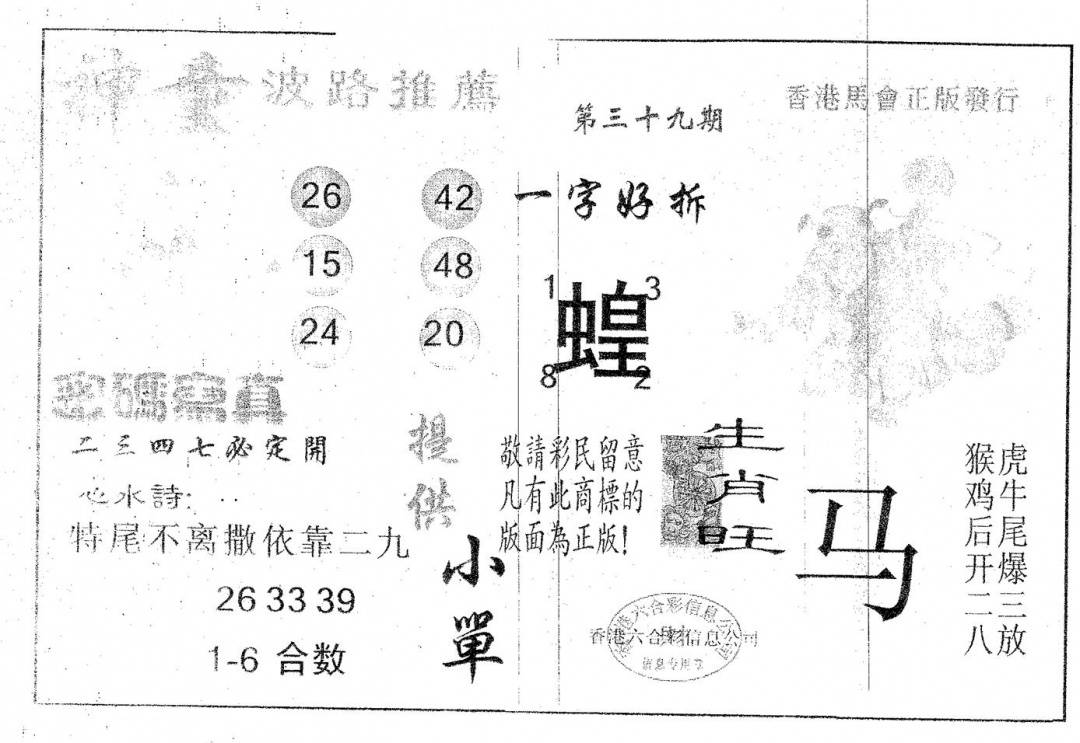 神童 波路推薦
第三十九期
香港馬會正版發行
26 42
15 48
24 20
一字好拆
1 3
蝗
8 2
密碼寫真
二三四七必定開
心水詩:
特尾不离撒依靠二九
26 33 39
1-6 合数
提供
小單
敬請彩民留意
凡有此商標的
版面為正版!
生肖旺
马
虎牛尾爆三放
猴鸡后开二八
香港六合彩信息公司
香港六合 信息公司
信息专用章